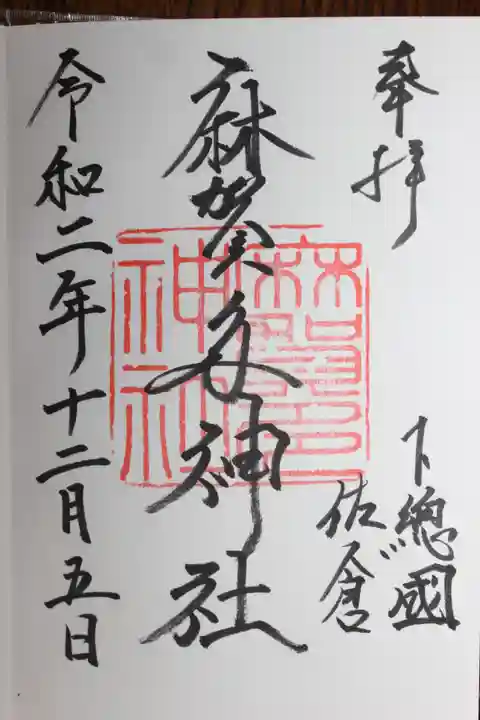 奉拝
下總國
佐倉
麻賀多神社
麻賀多神社
令和二年十二月五日